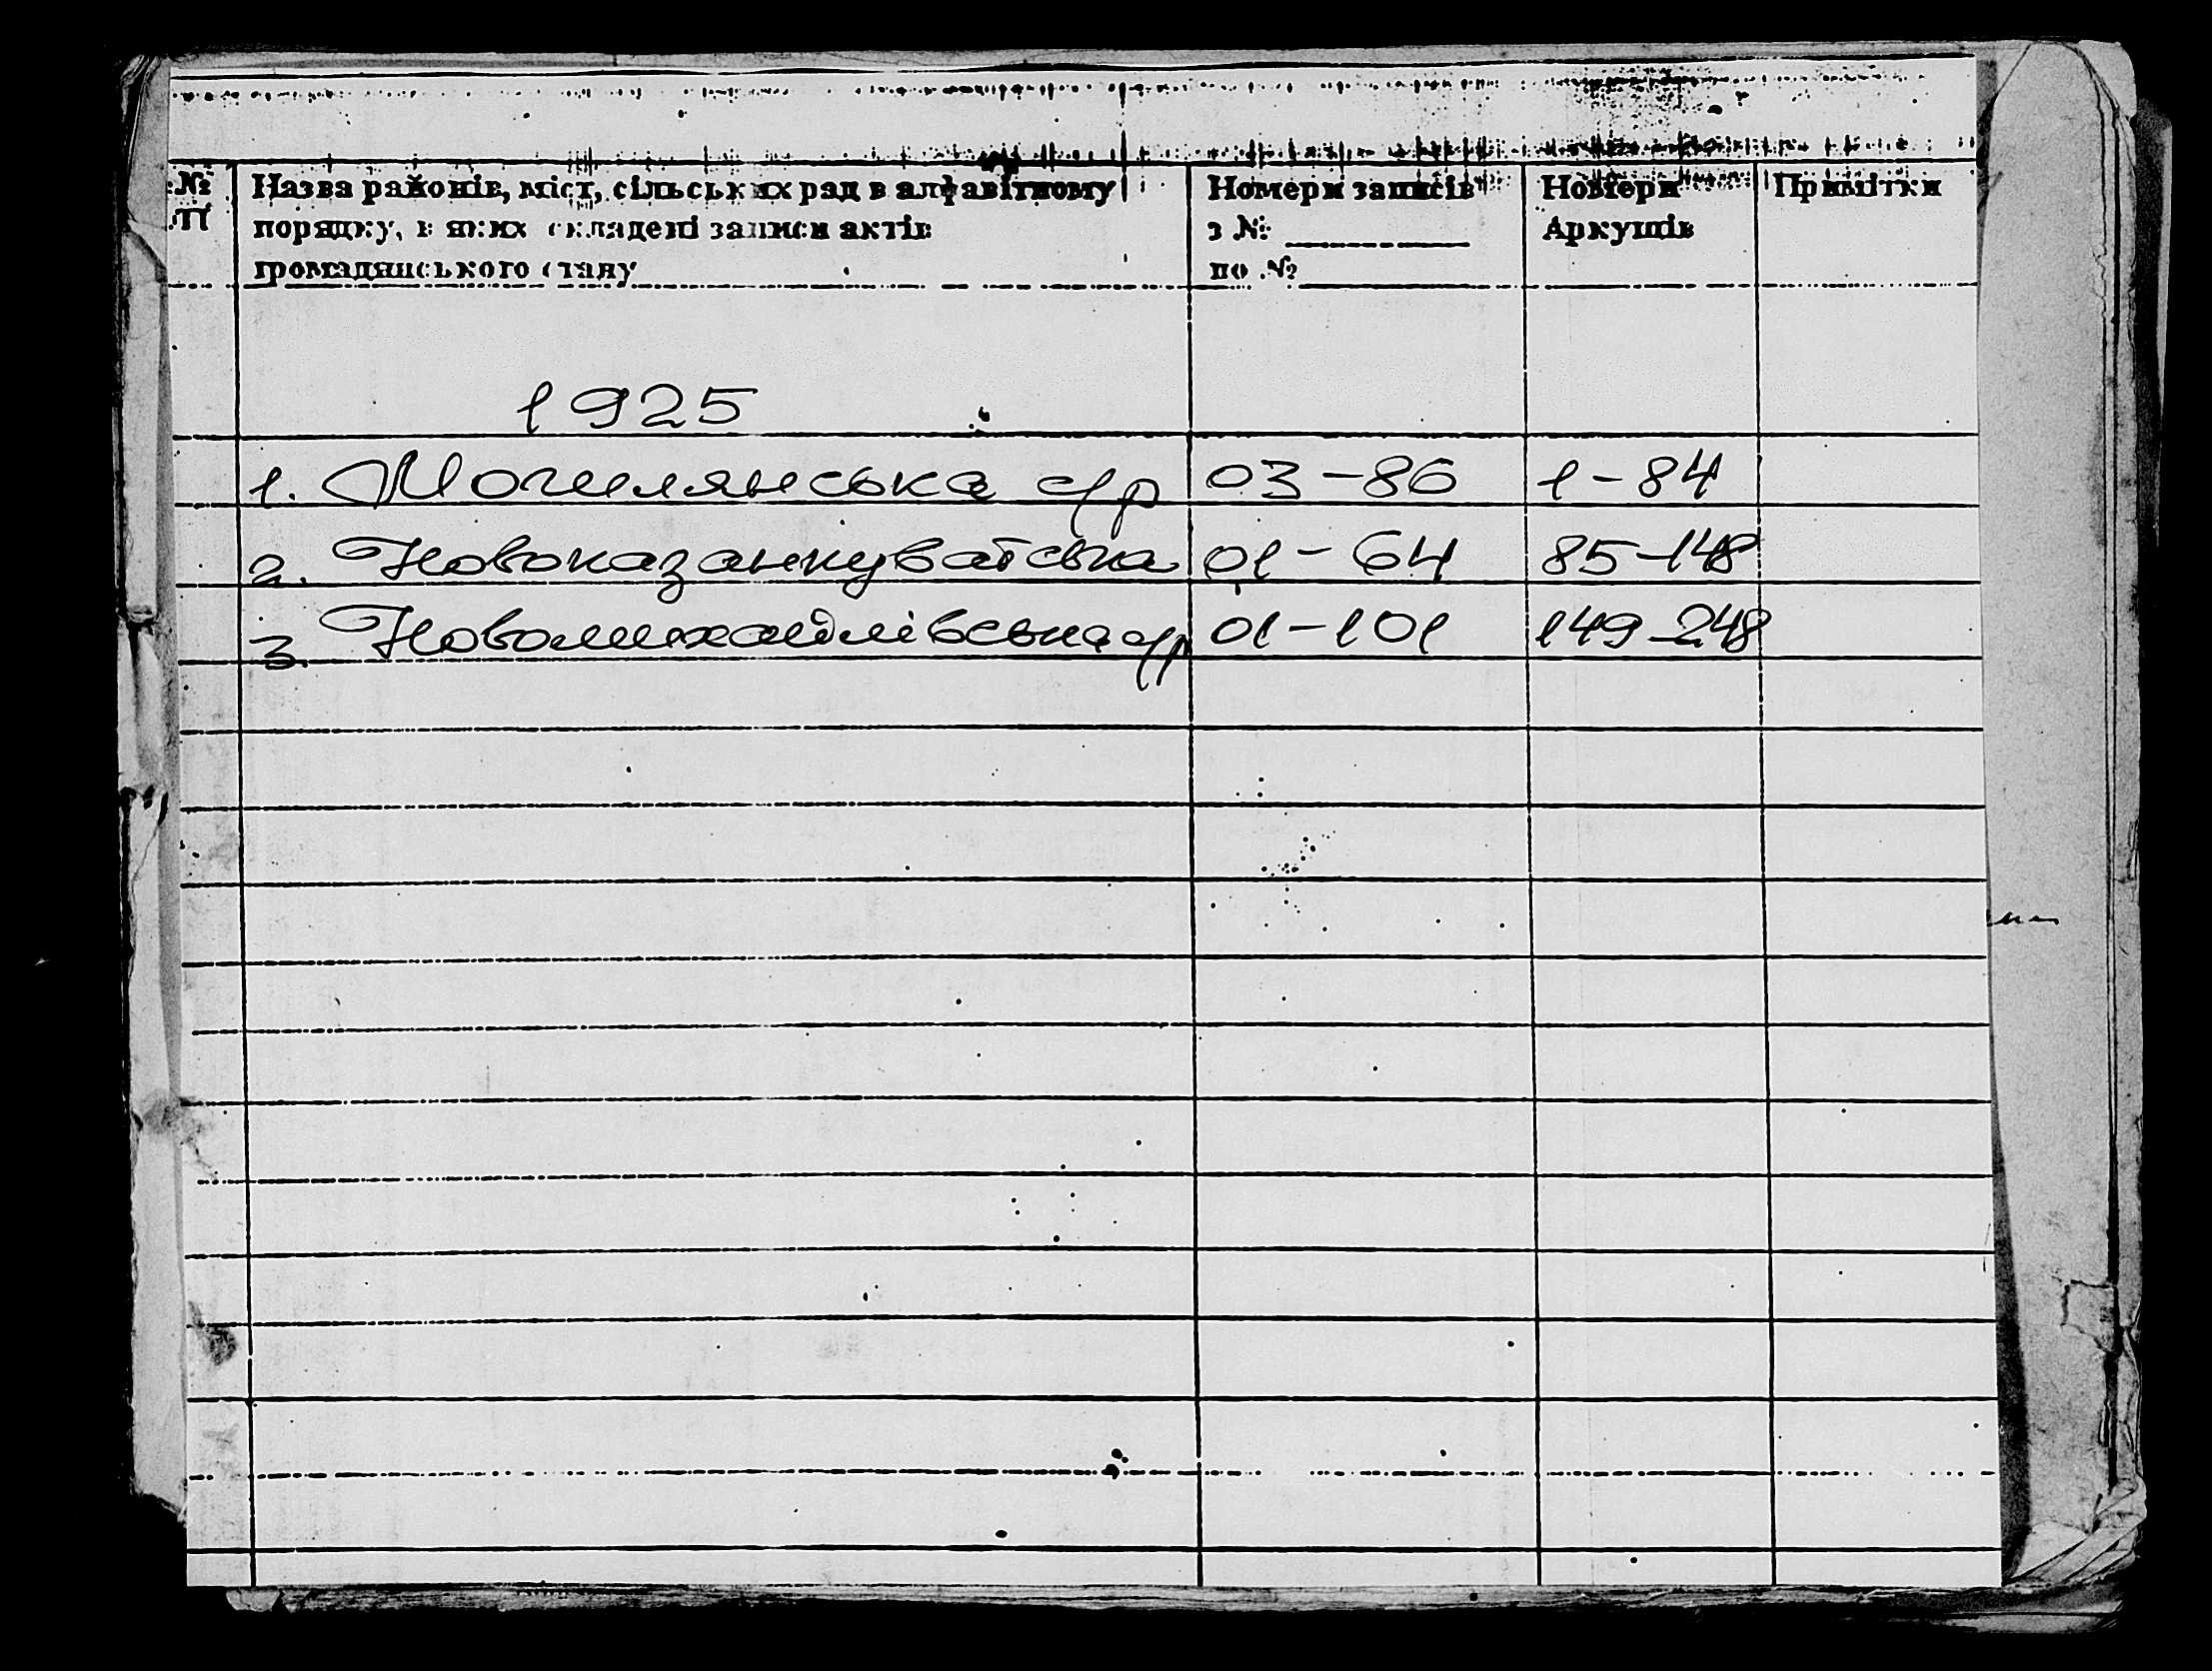 № Назва районів, міст, сільських рад в алфавітному Номери записів Номери Примітки
П порядку, в яких складені записи актів з № Аркушів
громадянського стану по №
1925
1. Могилянська с/р 03-86 1-84
2. Новоказанкуватська 01-64 85-148
3. Новомихайлівська с/р 01-101 149-248